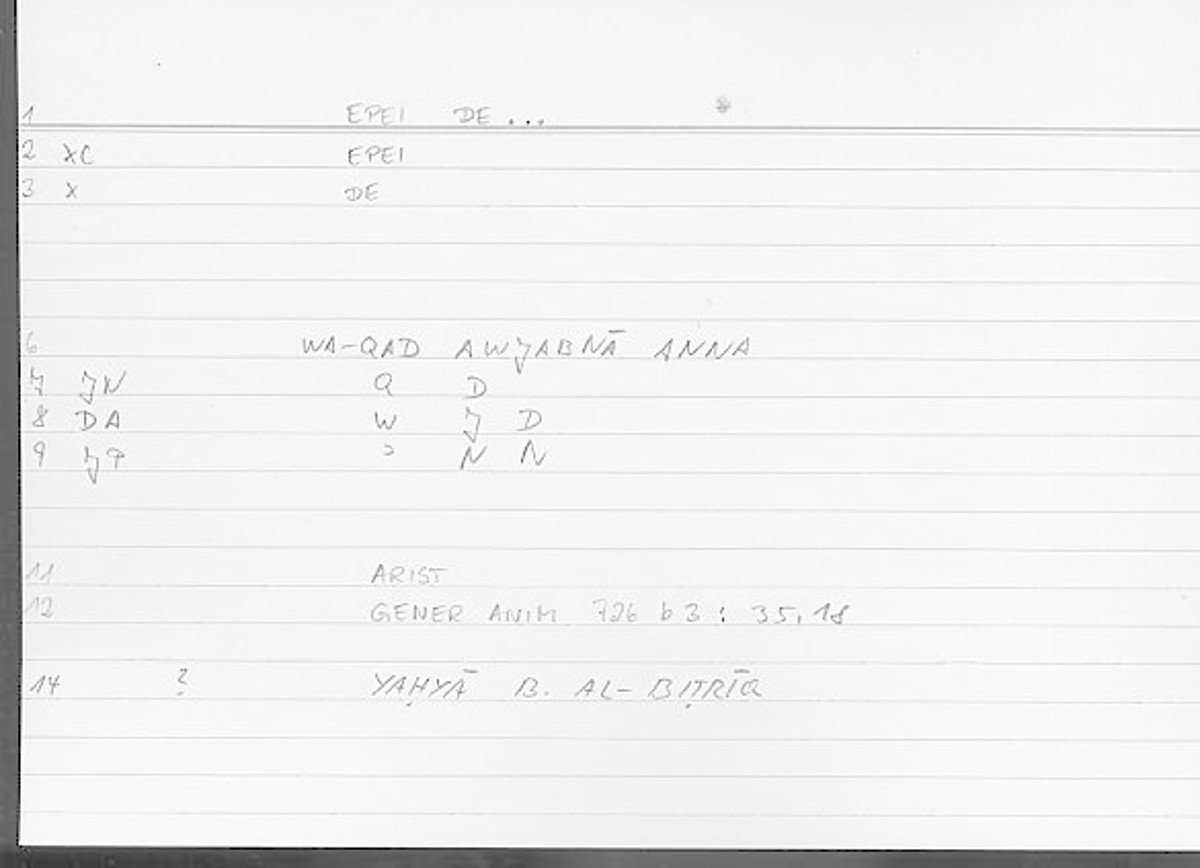 1 EPEI DE...
2 XC EPEI
3 X DE
6 WA-QAD AWJABNĀ ANNA
7 JN Q D
8 DA W J D
9 JP ᵓ N N
11 ARIST
12 GENER ANIM 726 b 3 : 35,18
14 ? YAḤYĀ B. AL-BIṬRĪQ